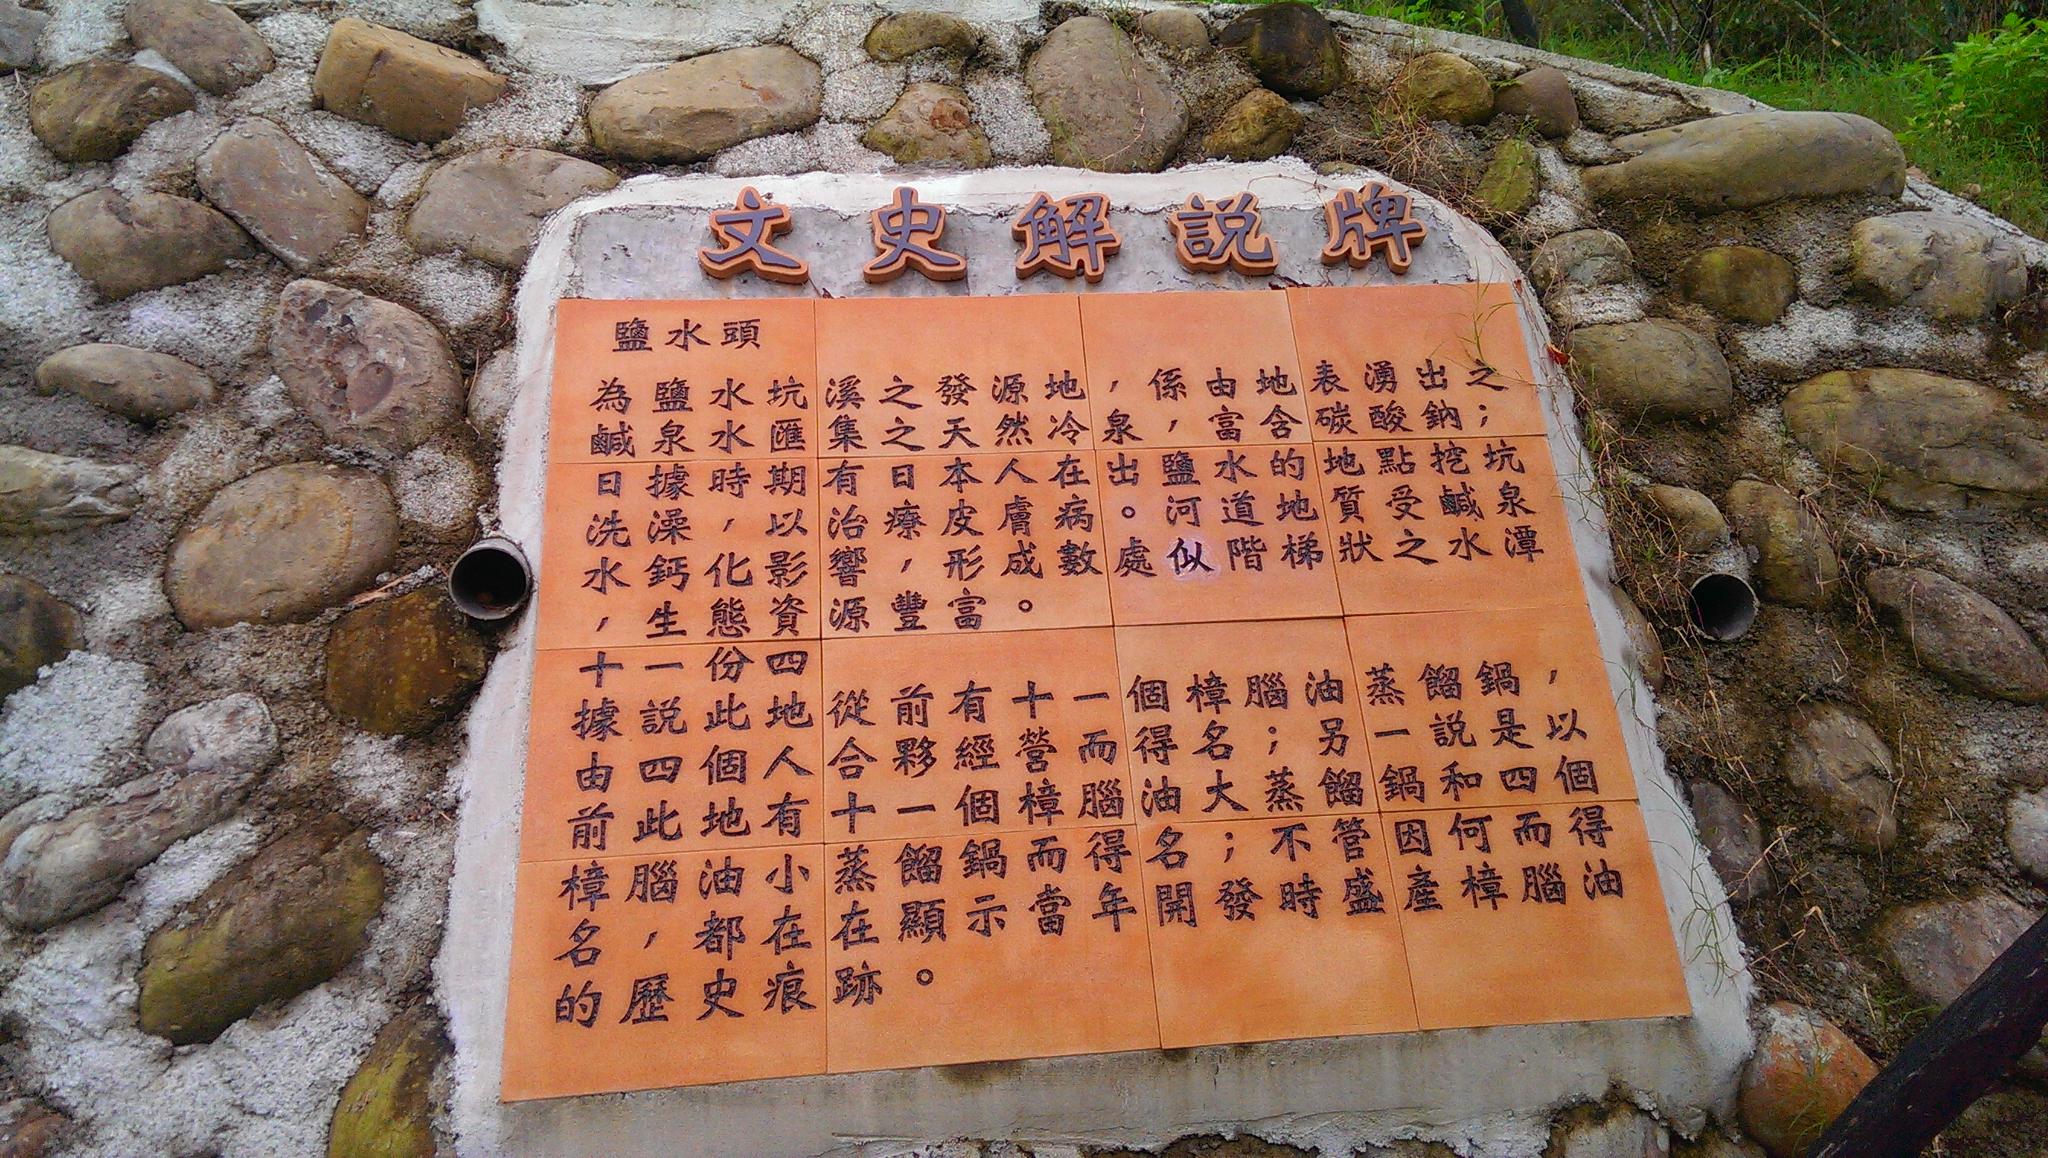 文史解說牌
鹽水頭
為鹽水坑溪之發源地，係由地表湧出之
鹹泉水匯集之天然冷泉，富含碳酸鈉；
日據時期有日本人在出鹽水的地點挖坑
洗澡，以治療皮膚病。河道地質受鹹泉
水鈣化影響，形成數處似階梯狀之水潭
，生態資源豐富。
十一份四
據說此地從前有十一個樟腦油蒸餾鍋，
由四個人合夥經營而得名；另一說是以
前此地有十一個樟腦油大蒸餾鍋和四個
樟腦油小蒸餾鍋而得名；不管因何而得
名，都在在顯示當年開發時盛產樟腦油
的歷史痕跡。